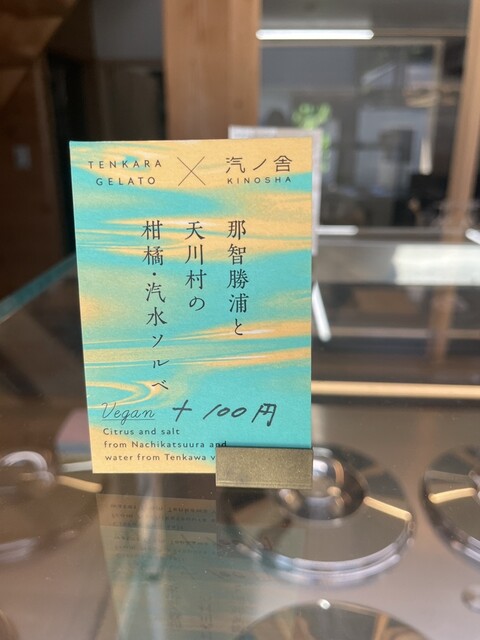 TENKARA
GELATO
×
汽ノ舎
KINOSHA
那智勝浦と
天川村の
柑橘・汽水ソルベ
Vegan + 100円
Citrus and salt
from Nachikatsuura and
water from Tenkawa